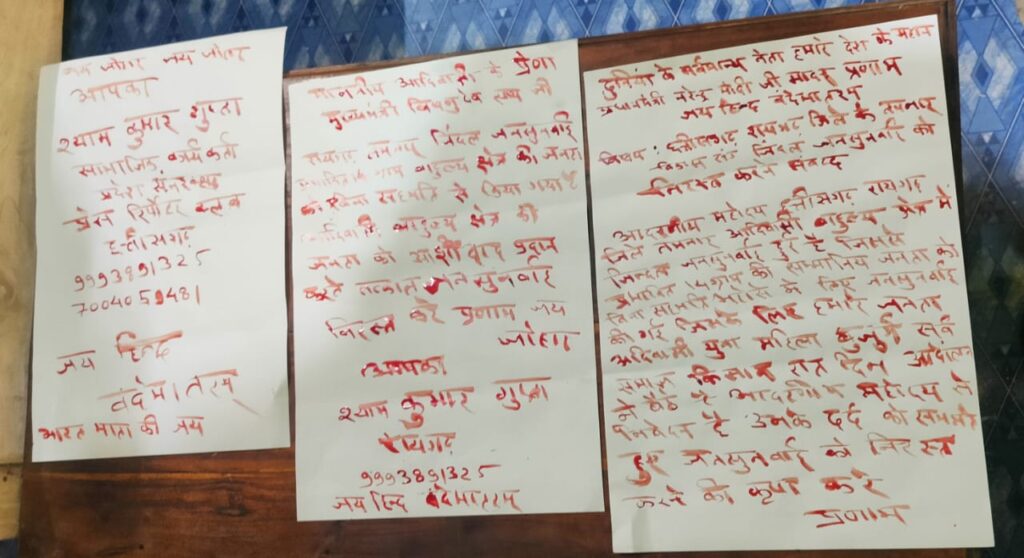 जय जोहार जय जोहार
आपका
श्याम कुमार गुप्ता
सामाजिक कार्यकर्ता
प्रदेश
प्रेस रिपोर्टर क्लब
छत्तीसगढ़
9993891325
7004059481
जय हिन्द
वंदेमातरम्
भारत माता की जय
माननीय आदिवासी के प्रेणा
मुख्यमंत्री विष्णुदेव साय जी
रायगढ़ तमनार जिंदल जनसुनवाई
ग्राम बाहुल्य क्षेत्र की जनता
सहमति से किया गया है
आदिवासी बाहुल्य क्षेत्र की
जनता को आशीर्वाद प्रदान
करते तत्काल जन सुनवाई
निरस्त करे प्रणाम जय
जोहार
आपका
श्याम कुमार गुप्ता
रायगढ़
9993891325
जय हिन्द वंदेमातरम्
दुनिया के सर्वमान्य नेता हमारे देश के महान
प्रधानमंत्री नरेन्द्र मोदी जी सादर प्रणाम
जय हिन्द वंदेमातरम
विषय छत्तीसगढ़ रायगढ़ जिले के तमनार
जिंदल जनसुनवाई को
निरस्त करने संबंध
आदरणीय महोदय छत्तीसगढ़ रायगढ़
जिले तमनार आदिवासी बाहुल्य क्षेत्र में
जिन्दल जनसुनवाई हुई है जिसमें
प्रभावित जनता को
बिना सहमति के लिए जनसुनवाई
की गई जिसके लिए हमारे जनता
आदिवासी युवा महिला बुजुर्ग सर्व
समाज किसान रात दिन आंदोलन
में बैठे है आदरणीय महोदय से
निवेदन है उनके दर्द को समझते
हुए जनसुनवाई को निरस्त
करने की कृपा करे
प्रणाम